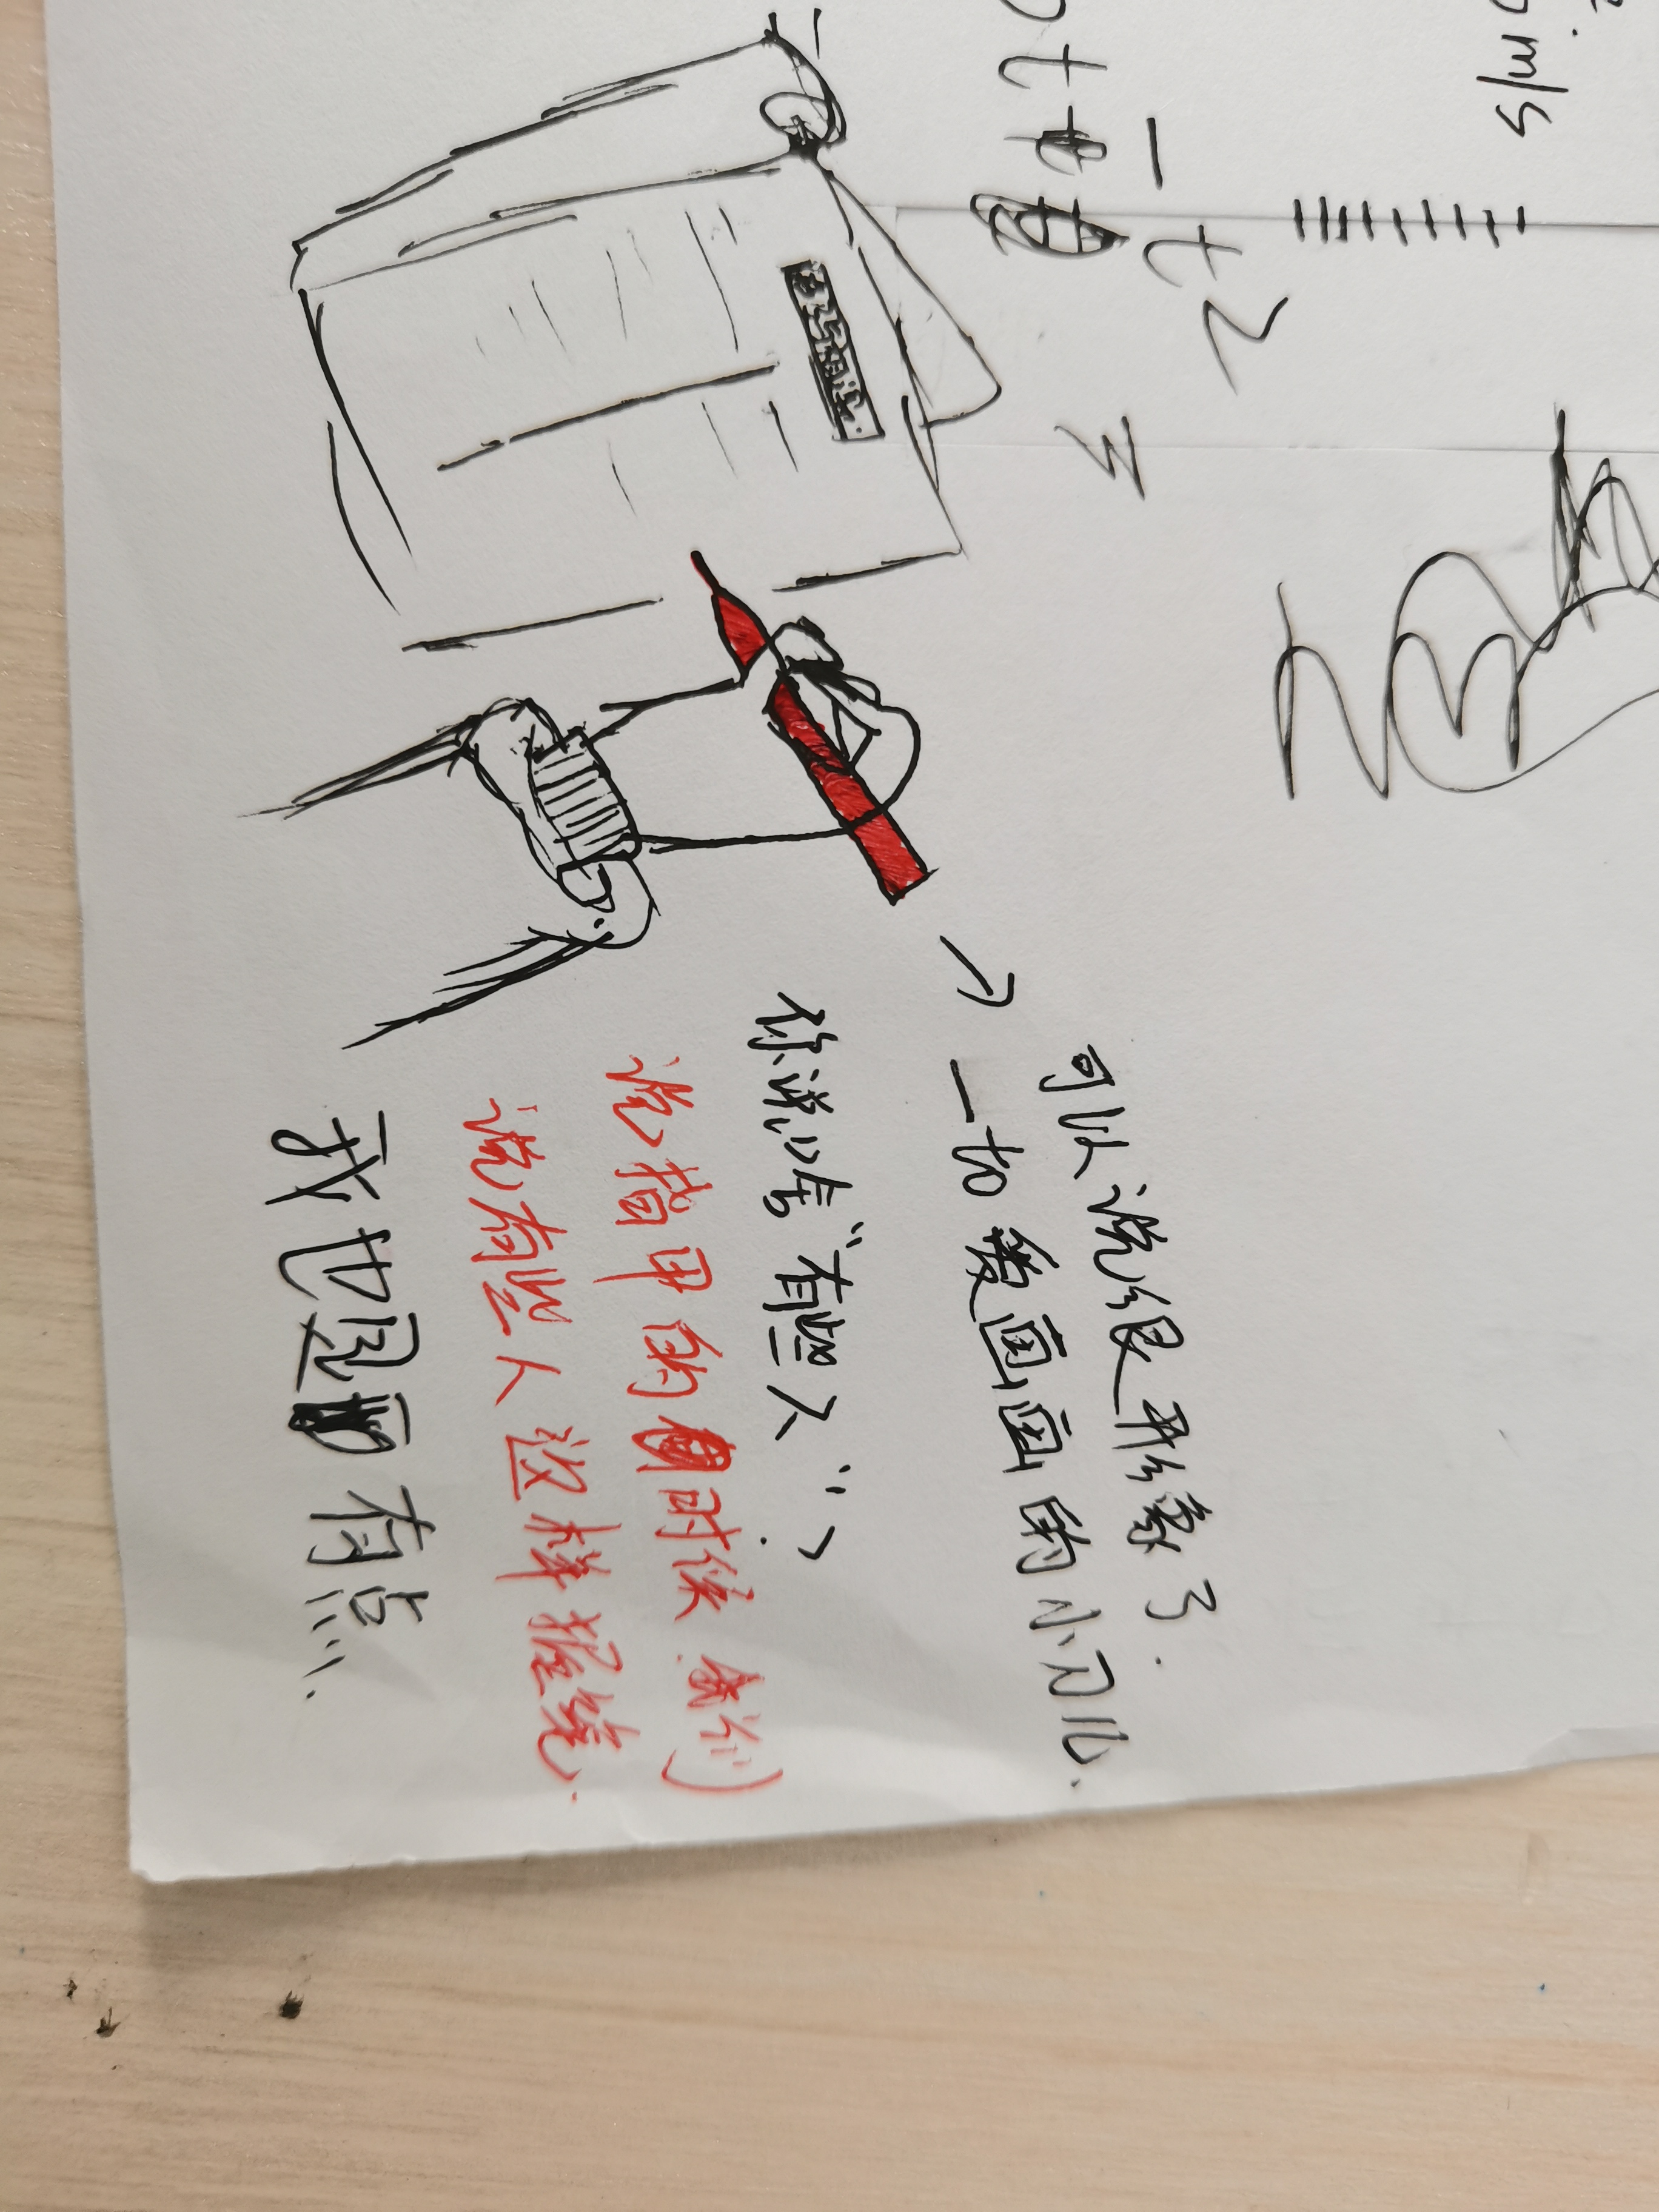 m/s
t²
t+
可以说很形象了.
→ 一切爱画画的小刀儿.
你说啥“有些人”?
说指甲的时候 我们
说有些人这样握笔.
我也是有点.